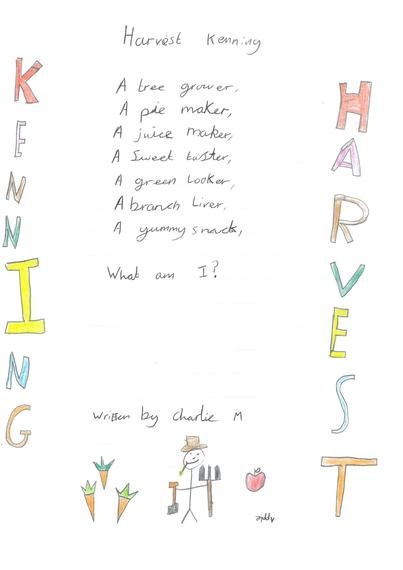 Harvest Kenning
KENNING
HARVEST
A tree grower,
A pie maker,
A juice maker,
A Sweet taster,
A green Looker,
A branch Liver,
A yummy snack,
What am I?
Written by Charlie M
apple